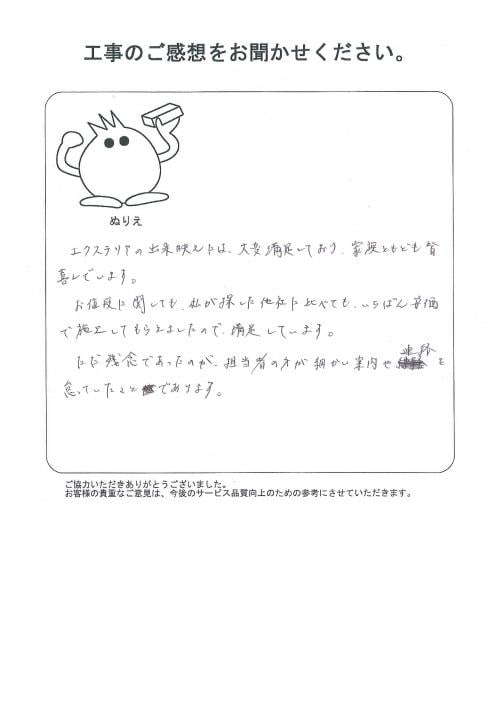 工事のご感想をお聞かせください。
ぬりえ
エクステリアの出来映えには、大変満足しており、家族ともども皆
喜んでいます。
お値段に関しても、私が探した他社に比べても、いちばん安価
で施工してもらえましたので、満足しています。
ただ残念であったのが、担当者の方が細かい案内や連絡を
怠っていたことであります。
ご協力いただきありがとうございました。
お客様の貴重なご意見は、今後のサービス品質向上のための参考にさせていただきます。